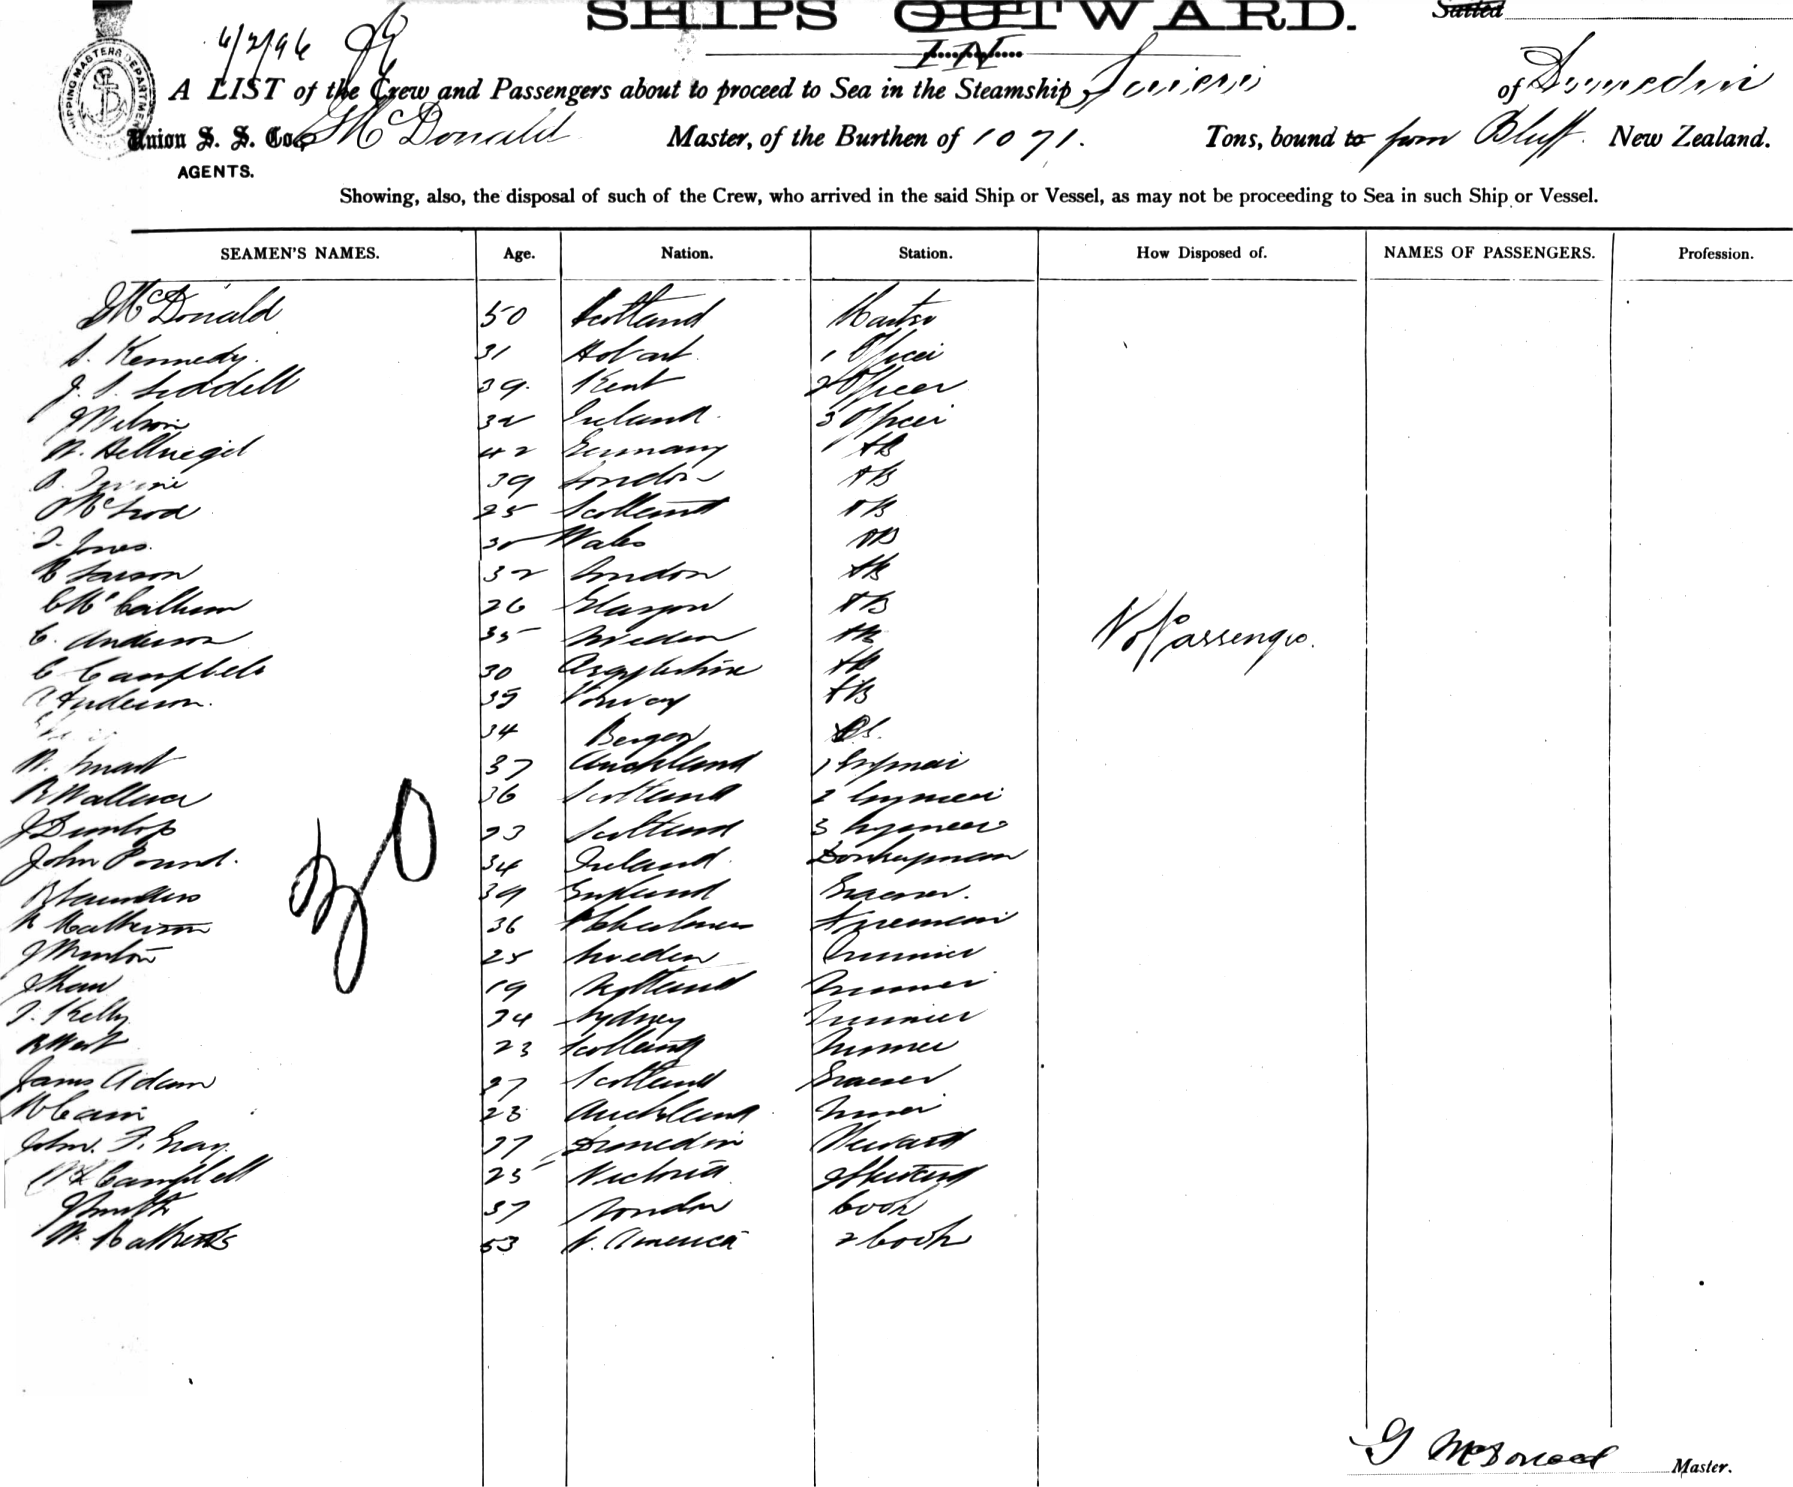 SHIPS OUTWARD.
IN
Sailed
6/2/96
SHIPPING MASTERS DEPARTMENT
A LIST of the Crew and Passengers about to proceed to Sea in the Steamship of Dunedin
Union S. S. Co., McDonald Master, of the Burthen of 1071. Tons, bound to from Bluff. New Zealand.
AGENTS.
Showing, also, the disposal of such of the Crew, who arrived in the said Ship or Vessel, as may not be proceeding to Sea in such Ship or Vessel.
SEAMEN'S NAMES. Age. Nation. Station. How Disposed of. NAMES OF PASSENGERS. Profession.
McDonald 50 Scotland Master
Kennedy. 31 Hobart 1 Officer
J. S. Liddell 39. Kent 2 Officer
J Wilson 32 Ireland. 3 Officer
W. Hellriegel 42 Germany AB
Irvine 39 London AB
McLeod 25 Scotland AB
Jones. Wales AB
Larson 32 London AB
C McCallum 26 Glasgow AB
C. Anderson 35 Sweden AB
No Passengers.
C Campbell 30 Argyleshire AB
Anderson. 35 Norway AB
34 Bergen
W. Smart 37 Auckland 1 Engineer
R Wallace 36 Scotland 2 Engineer
J Dunlop 23 Scotland 3 Engineer
John Pound. 34 Ireland. Donkeyman
30
R Saunders 39 England Greaser.
Matheson 36 Pt Chalmers Fireman
J 25 Sweden Trimmer
J Shaw 19 Scotland Trimmer
J. Kelly 24 Sydney Trimmer
R West 23 Scotland Trimmer
James Adam 27 Scotland Greaser
23 Auckland Trimmer
John. F. Gray. 27 Dunedin Steward
Campbell 25 Victoria
J Smith 37 London Cook
W. 53 N. America 2 Cook
G McDonald Master.